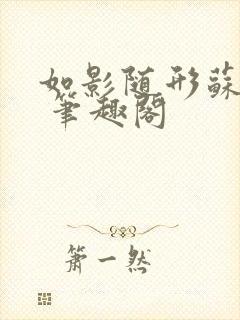 如影随形蘇
笔趣阁
箫一然